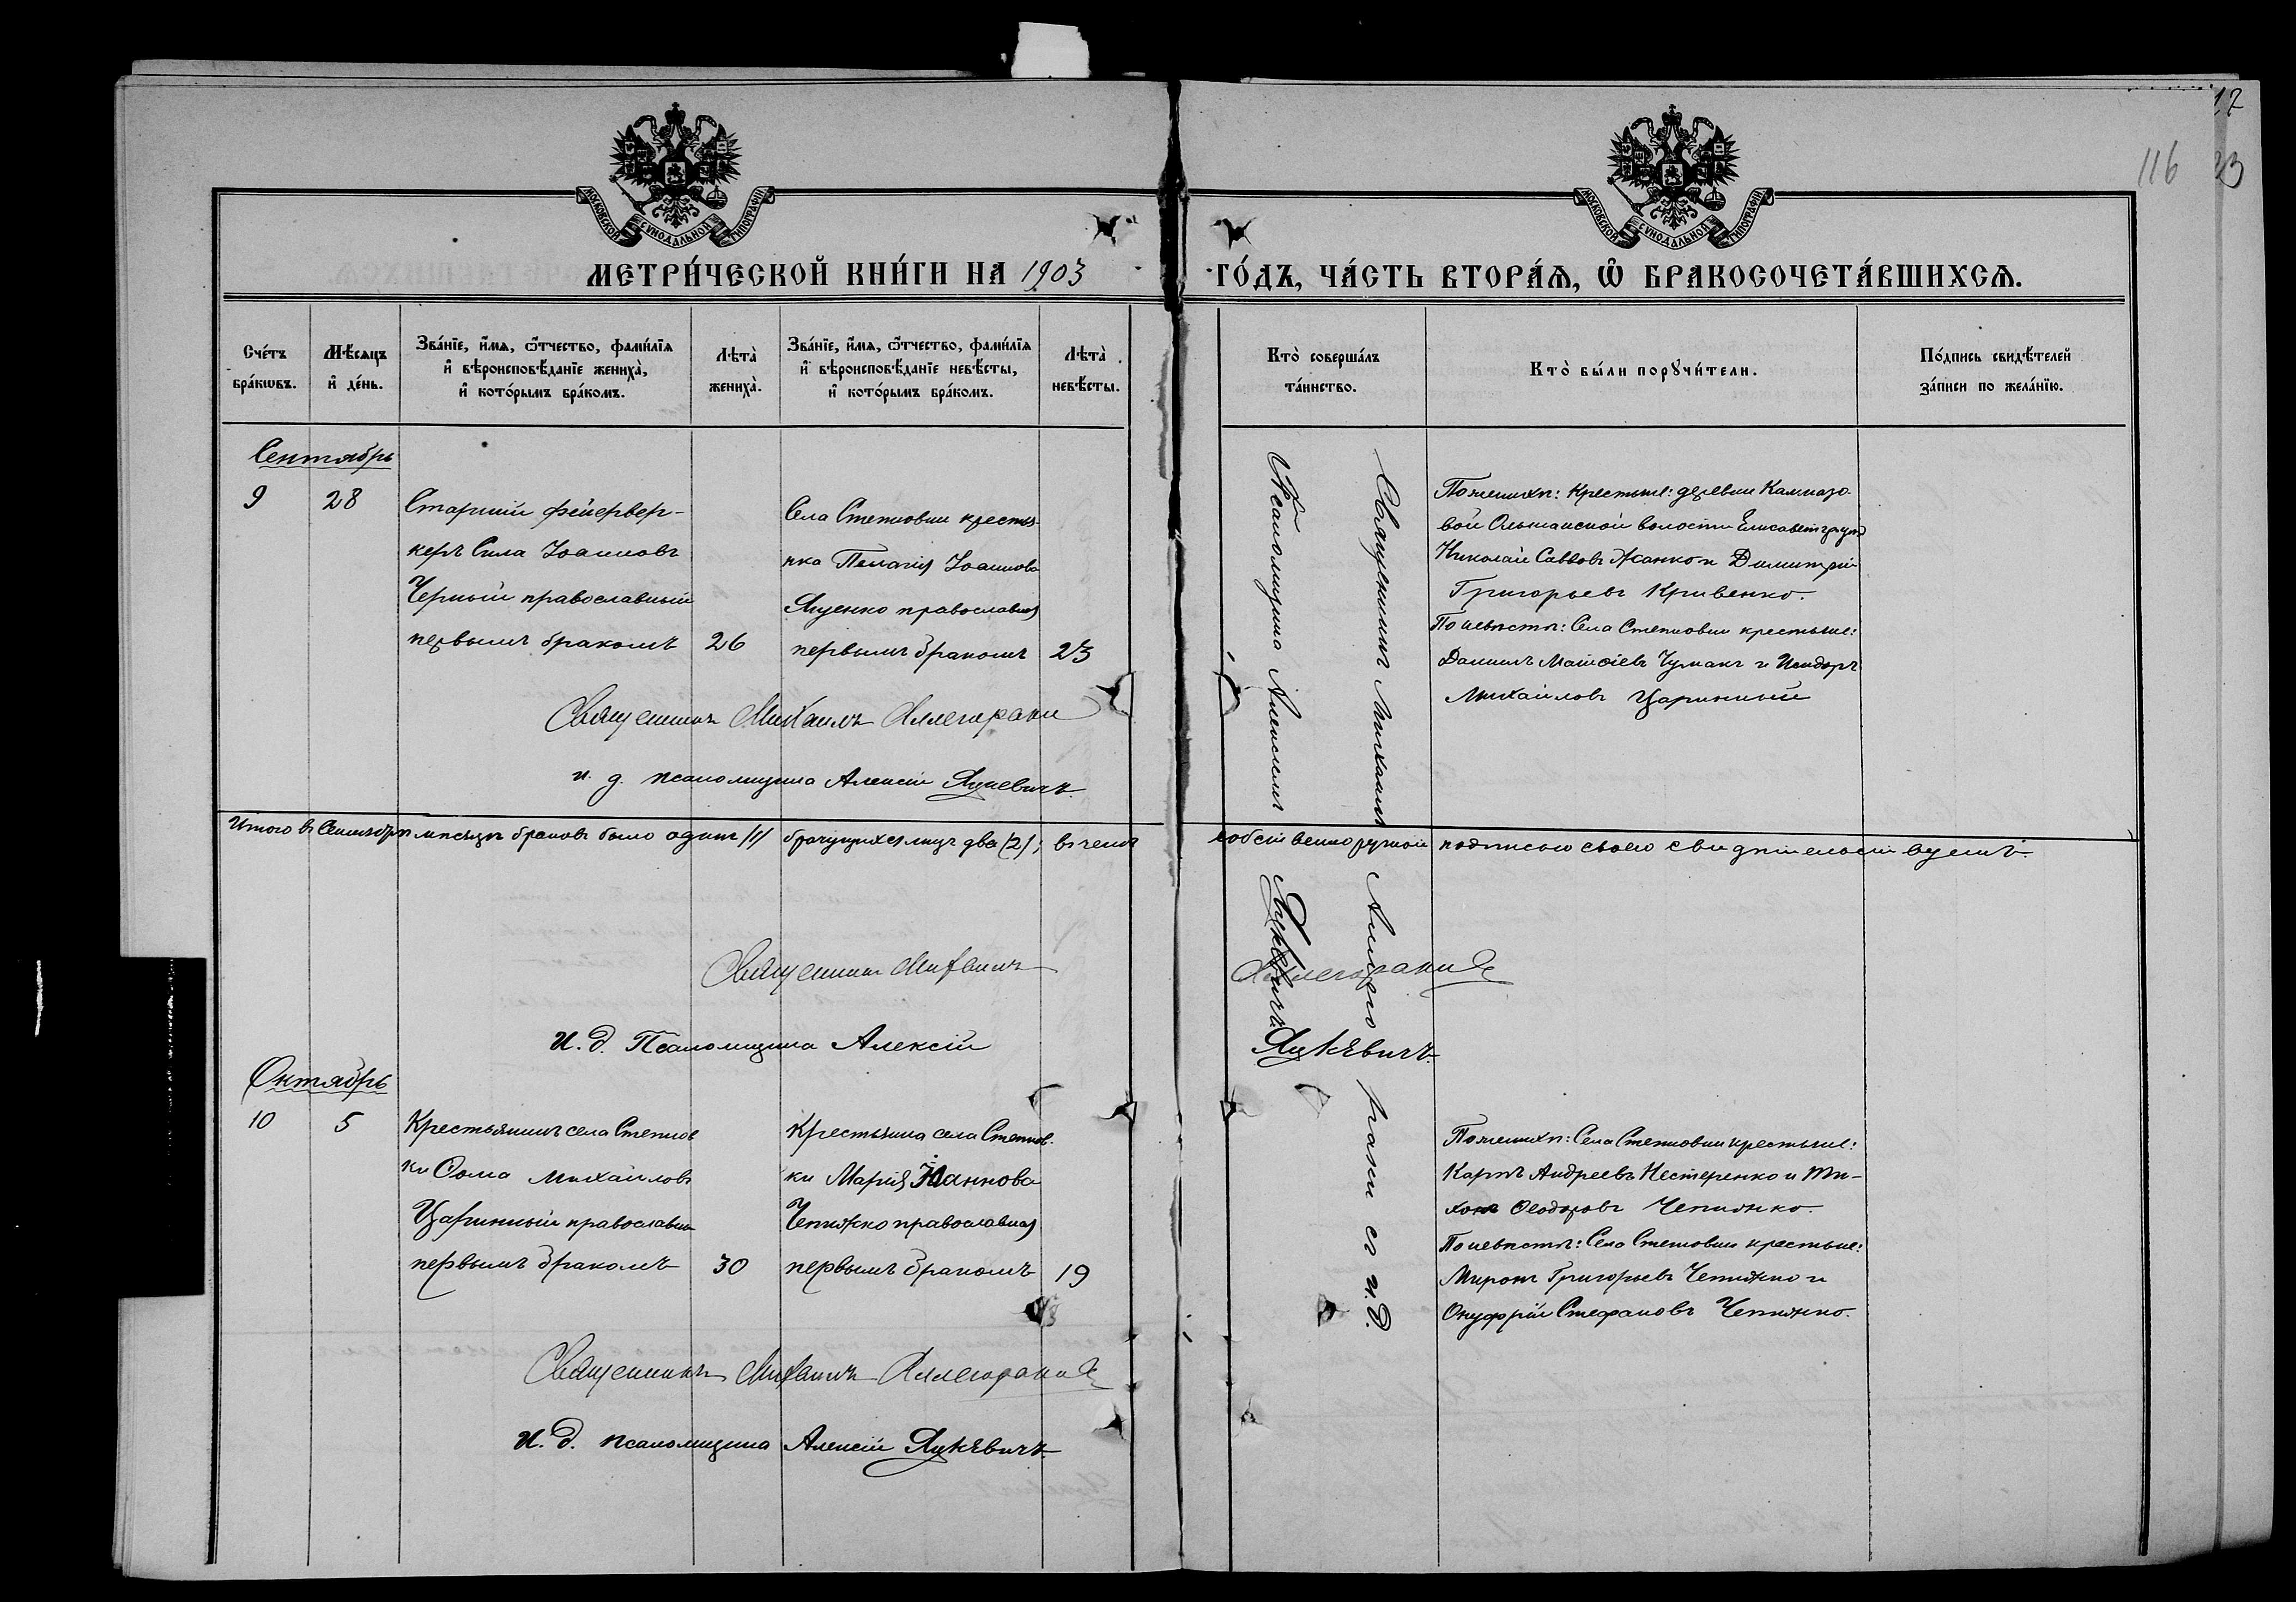 МОСКОВСКОЙ СѴНОДАЛЬНОЙ ТИПОГРАФІИ
МОСКОВСКОЙ СѴНОДАЛЬНОЙ ТИПОГРАФІИ
116
17
23
МЕТРИ́ЧЕСКОЙ КНИ́ГИ НА 1903 ГО́ДЪ, ЧА́СТЬ ВТОРА́Ѧ, Ѽ БРАКОСОЧЕТА́ВШИХСѦ.
Сче́тъ бра́кѡвъ.
Мѣ́сяцъ и҆ де́нь.
Зва́нїе, и҆́мѧ, ѻ҆́тчество, фами́лїѧ и҆ вѣроисповѣ́данїе женихà, и҆ кото́рымъ бра́комъ.
Лѣ́тà женихà.
Зва́нїе, и҆́мѧ, ѻ҆́тчество, фами́лїѧ и҆ вѣроисповѣ́данїе невѣ́сты, и҆ кото́рымъ бра́комъ.
Лѣ́тà невѣ́сты.
Кто̀ соверша́лъ та́инство.
Кто̀ бы́ли порꙋчи́тели.
По́дпись свидѣ́телей за́писи по жела́нїю.
Сентябрь
9
28
Старшій фейервер-
керъ Сила Іоанновъ
Черный православный
первымъ бракомъ
26
Села Степновки крестья-
нка Пелагія Іоаннова
Яценко православная
первымъ бракомъ
23
Священникъ Михаилъ Аллегораки съ и.д.
Псаломщика Алексѣемъ Яцкевичъ.
По женихѣ: крестьяне: деревни Камназо-
вой Ольшанской волости Елисаветград
Николай Саввовъ Жанко и Димитрій
Григорьевъ Кривенко.
По невѣстѣ: Села Степновки крестьяне:
Даніилъ Матѳіевъ Чумакъ и Исидоръ
Михайловъ Царинный
Священникъ Михаилъ Аллегораки
и. д. псаломщика Алексій Яцкевичъ.
Итого въ Сентябрѣ мѣсяцѣ браковъ было одинъ /1/ брачущихся лицъ два (2); въ чемъ собственноручной подписью своею свидѣтельствуемъ.
Священникъ Михаилъ Аллегораки
И. д. Псаломщика Алексій Яцкевичъ.
Октябрь
10
5
Крестьянинъ села Степнов
ки Ѳома Михайловъ
Царинный православный
первымъ бракомъ
30
Крестьянка села Степнов-
ки Марія Іоаннова
Чепижко православная
первымъ бракомъ
19
По женихѣ: Села Степновки крестьяне:
Карпъ Андреевъ Нестеренко и Ти-
хонъ Ѳеодоровъ Чепижко.
По невѣстѣ: Села Степновки крестьяне:
Миронъ Григорьевъ Чепижко и
Онуфрій Стефановъ Чепижко.
Священникъ Михаилъ Аллегораки
И. д. псаломщика Алексій Яцкевичъ.